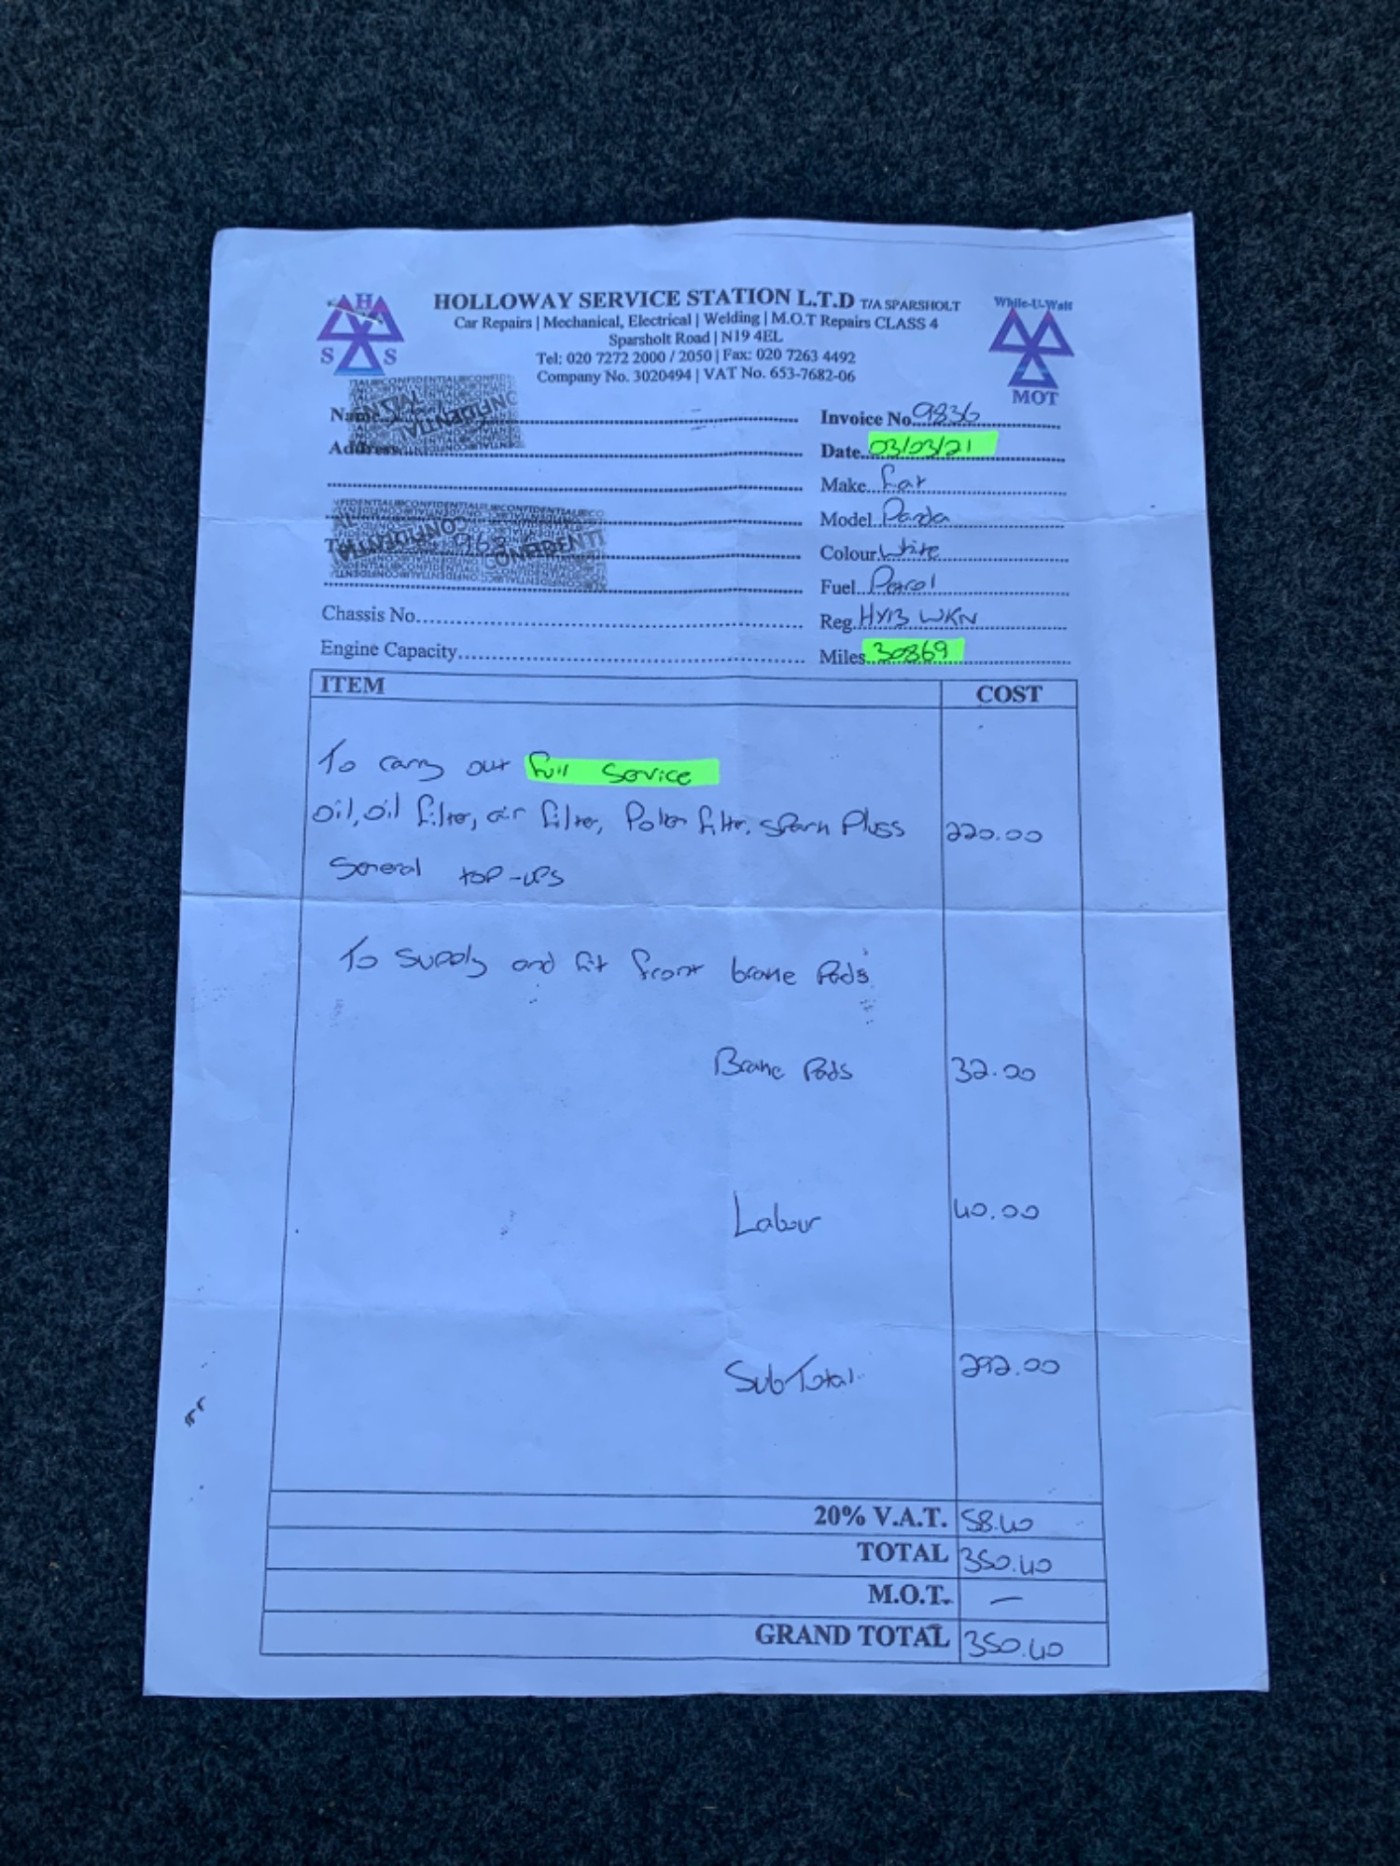 H
S S
HOLLOWAY SERVICE STATION L.T.D T/A SPARSHOLT
Car Repairs | Mechanical, Electrical | Welding | M.O.T Repairs CLASS 4
Sparsholt Road | N19 4EL
Tel: 020 7272 2000 / 2050 | Fax: 020 7263 4492
Company No. 3020494 | VAT No. 653-7682-06
While-U-Wait
MOT
Name
CONFIDENTIAL
Invoice No. 9836
Address
Date 03/03/21
Make Fiat
Model Panda
CONFIDENTIAL
Colour White
Fuel Petrol
Chassis No.
Reg HY13 WKN
Engine Capacity
Miles 30869
ITEM COST
To carry out full service
oil, oil filter, air filter, Pollen filter, spark Plugs 220.00
General top-ups
To supply and fit front brake Pads
Brake Pads 32.00
Labour 40.00
Sub Total 292.00
20% V.A.T. 58.40
TOTAL 350.40
M.O.T. —
GRAND TOTAL 350.40